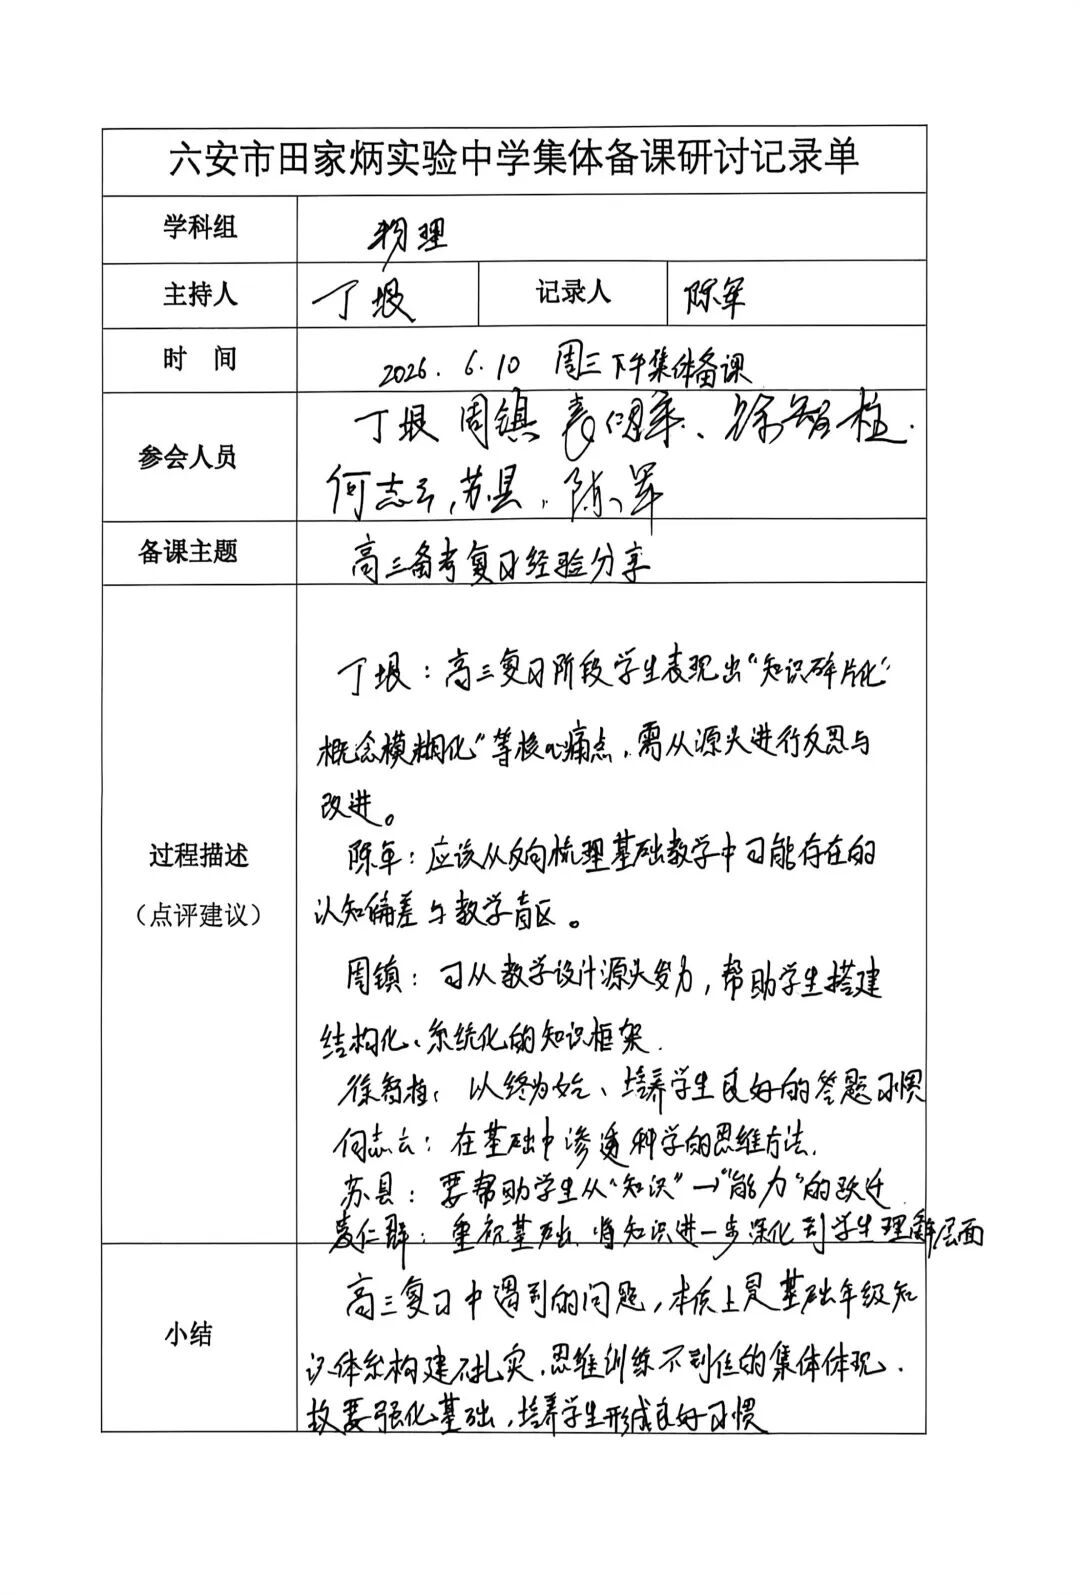 六安市田家炳实验中学集体备课研讨记录单
学科组 物理
主持人 丁垠 记录人 陈军
时 间 2026.6.10 周三下午集体备课
参会人员 丁垠 周镇 袁仁群、徐智柱.
何志云,苏县,陈军
备课主题 高三备考复习经验分享
丁垠:高三复习阶段学生表现出“知识碎片化”
概念模糊化”等核心痛点,需从源头进行反思与
改进。
过程描述
(点评建议)
陈军:应该从反向梳理基础教学中可能存在的
认知偏差与教学盲区。
周镇:可从教学设计源头发力,帮助学生搭建
结构化、系统化的知识框架.
徐智柱:以终为始、培养学生良好的答题习惯
何志云:在基础中渗透科学的思维方法.
苏县:要帮助学生从“知识”→“能力”的跃迁
袁仁群:重视基础、将知识进一步深化到学生理解层面
小结
高三复习中遇到的问题,本质上是基础年级知
识体系构建不扎实、思维训练不到位的集体体现.
故要强化基础,培养学生形成良好习惯